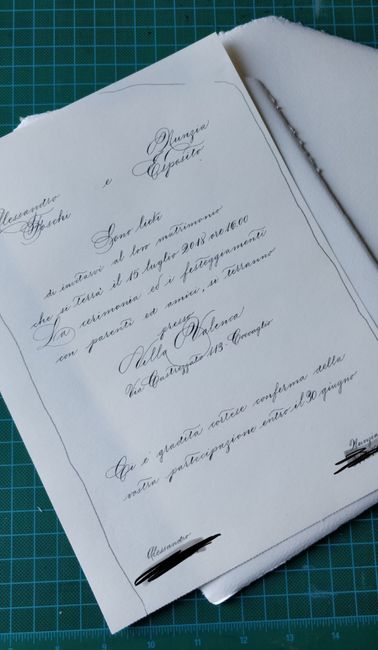 Nunzia
Esposito
e
Alessandro
Foschi
Sono lieti
di invitarvi al loro matrimonio
che si terrà il 15 luglio 2018 ore 16:00
La cerimonia ed i festeggiamenti
con parenti ed amici, si terranno
presso
Villa Valenca
Via Castrezzato 113 - Coccaglio
Ci è gradita cortese conferma della
vostra partecipazione entro il 30 giugno
Nunzia
Alessandro
10 11 12 13 14